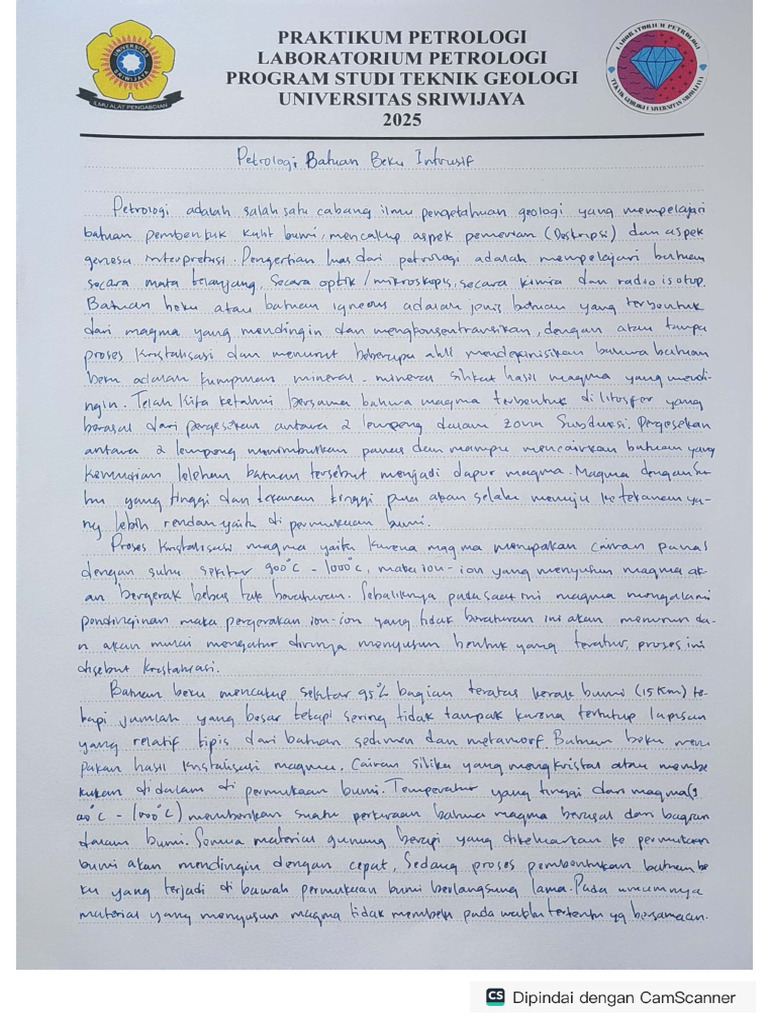 PRAKTIKUM PETROLOGI
LABORATORIUM PETROLOGI
PROGRAM STUDI TEKNIK GEOLOGI
UNIVERSITAS SRIWIJAYA
2025
UNIVERSITAS SRIWIJAYA
ILMU ALAT PENGABDIAN
LABORATORIUM PETROLOGI
TEKNIK GEOLOGI UNIVERSITAS SRIWIJAYA
Petrologi Batuan Beku Intrusif
Petrologi adalah salah satu cabang ilmu pengetahuan geologi yang mempelajari
batuan pembentuk kulit bumi, mencakup aspek pemerian (Deskripsi) dan aspek
genesa interpretasi. Pengertian luas dari petrologi adalah mempelajari batuan
secara mata telanjang, Secara optik / mikroskopis, secara kimia dan radio isotop.
Batuan beku atau batuan igneous adalah jenis batuan yang terbentuk
dari magma yang mendingin dan mengkonsentrasikan, dengan atau tanpa
proses kristalisasi dan menurut beberapa ahli mendefinisikan bahwa batuan
beku adalah kumpulan mineral - mineral silikat hasil magma yang mendi-
ngin. Telah kita ketahui bersama bahwa magma terbentuk di litosfer yang
berasal dari pergesekan antara 2 lempeng dalam zona Subduksi. Pergesekan
antara 2 lempeng menimbulkan panas dan mampu mencairkan batuan yang
kemudian lelehan batuan tersebut menjadi dapur magma. Magma dengan su-
hu yang tinggi dan tekanan tinggi pula akan selalu menuju ke tekanan ya-
ng lebih rendah yaitu di permukaan bumi.
Proses kristalisasi magma yaitu karena magma merupakan cairan panas
dengan suhu sekitar 900°C - 1000°C, maka ion-ion yang menyusun magma ak-
an bergerak bebas tak beraturan. Sebaliknya pada saat ini magma mengalami
pendinginan maka pergerakan ion-ion yang tidak beraturan ini akan menurun da-
n akan mulai mengatur dirinya menyusun bentuk yang teratur, proses ini
disebut kristalisasi.
Batuan beku mencakup sekitar 95% bagian teratas kerak bumi (15 Km) te-
tapi jumlah yang besar tetapi sering tidak tampak karena tertutup lapisan
yang relatif tipis dari batuan sedimen dan metamorf. Batuan beku meru
pakan hasil kristalisasi magma. Cairan silika yang mengkristal atau membe
kukan didalam di permukaan bumi. Temperatur yang tinggi dari magma (9
00°C - 1000°C) memberikan suatu perkiraan bahwa magma berasal dari bagian
dalam bumi. Semua material gunung berapi yang dikeluarkan ke permukaan
bumi akan mendingin dengan cepat, Sedang proses pembentukan batuan be
ku yang terjadi di bawah permukaan bumi berlangsung lama. Pada umumnya
material yang menyusun magma tidak membeku pada waktu tertentu yg bersamaan.
CS Dipindai dengan CamScanner